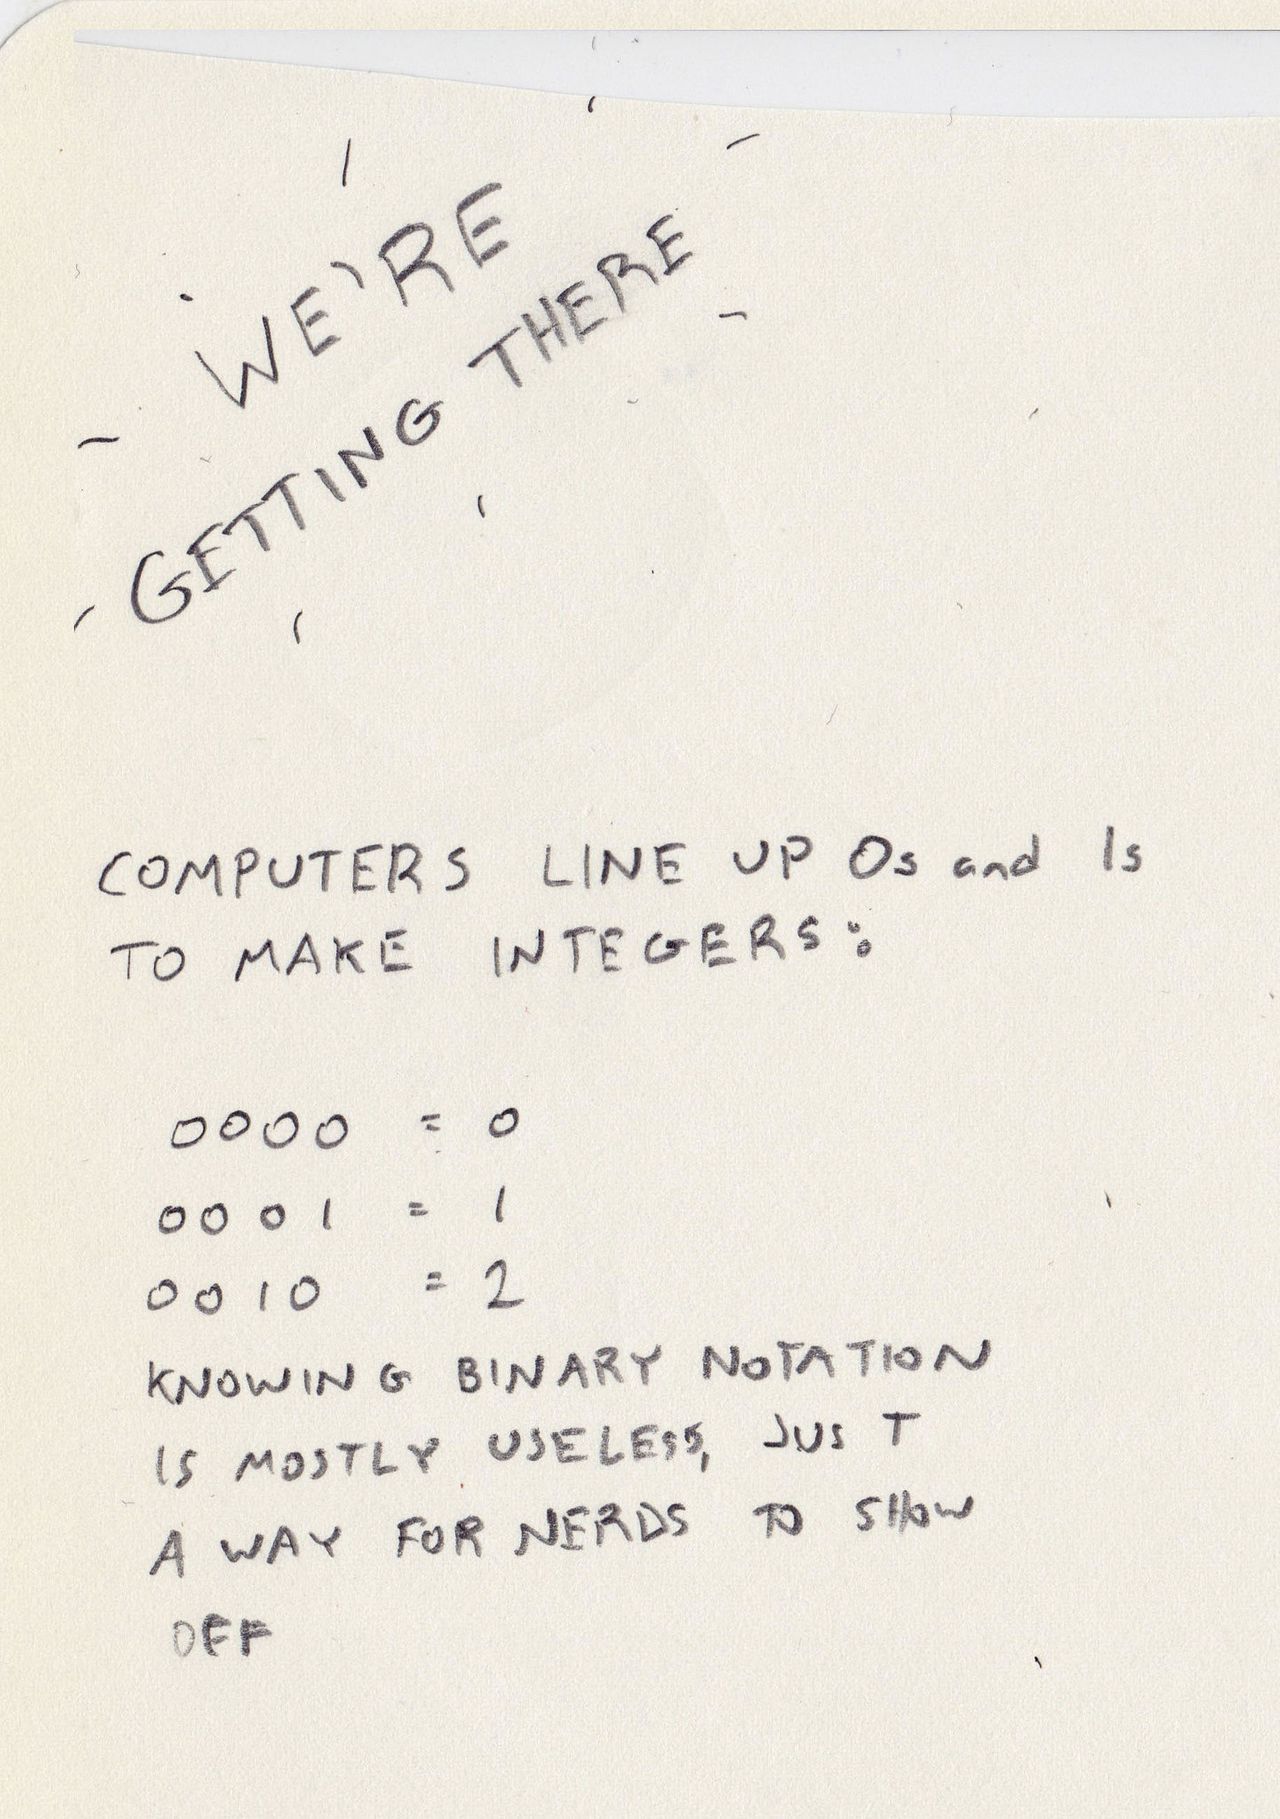 WE'RE
GETTING THERE
COMPUTERS LINE UP 0s and 1s
TO MAKE INTEGERS:
0000 = 0
0001 = 1
0010 = 2
KNOWING BINARY NOTATION
IS MOSTLY USELESS, JUST
A WAY FOR NERDS TO SHOW
OFF